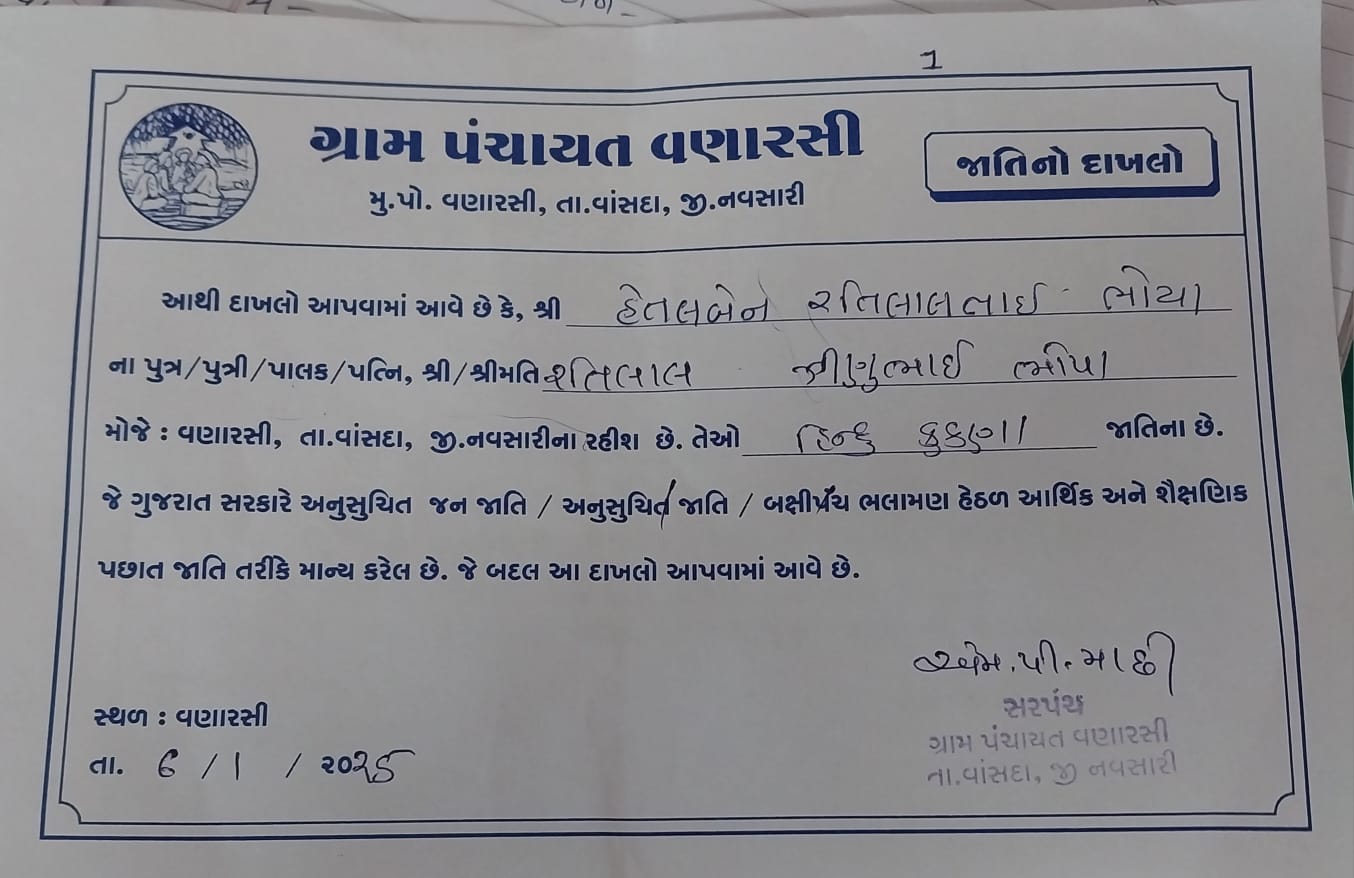 1
ગ્રામ પંચાયત વણારસી
મુ.પો. વણારસી, તા.વાંસદા, જી.નવસારી
જાતિનો દાખલો
આથી દાખલો આપવામાં આવે છે કે, શ્રી હેતલબેન રતિલાલભાઈ ભોયા
ના પુત્ર/પુત્રી/પાલક/પત્નિ, શ્રી/શ્રીમતિ રતિલાલ ઝીણુભાઈ ભોયા
મોજે : વણારસી, તા.વાંસદા, જી.નવસારીના રહીશ છે. તેઓ હિન્દુ કુકણા જાતિના છે.
જે ગુજરાત સરકારે અનુસુચિત જન જાતિ / અનુસુચિત જાતિ / બક્ષીપંચ ભલામણ હેઠળ આર્થિક અને શૈક્ષણિક
પછાત જાતિ તરીકે માન્ય કરેલ છે. જે બદલ આ દાખલો આપવામાં આવે છે.
એમ.પી.માછી
સરપંચ
ગ્રામ પંચાયત વણારસી
તા.વાંસદા, જી નવસારી
સ્થળ : વણારસી
તા. 6 / 1 / ૨૦૨૫